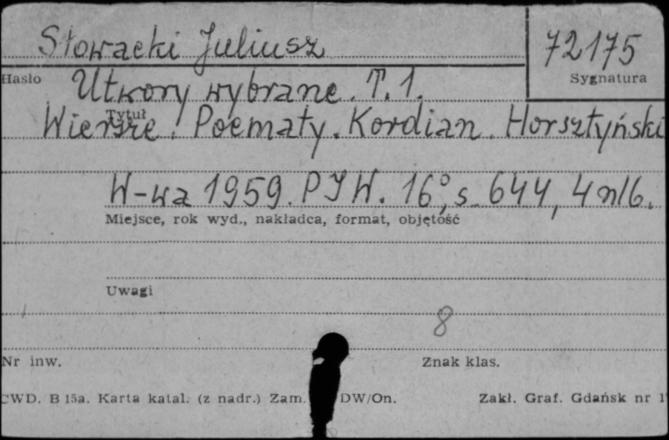 Słowacki Juliusz
72175
Hasło
Sygnatura
Utwory wybrane. T. 1.
Tytuł
Wiersze. Poematy. Kordian. Horsztyński
W-wa 1959. PIW. 16°, s. 644, 4 nlb.
Miejsce, rok wyd., nakładca, format, objętość
Uwagi
8
Nr inw.
Znak klas.
CWD. B 15a. Karta katal. (z nadr.) Zam. DW/On. Zakł. Graf. Gdańsk nr 1